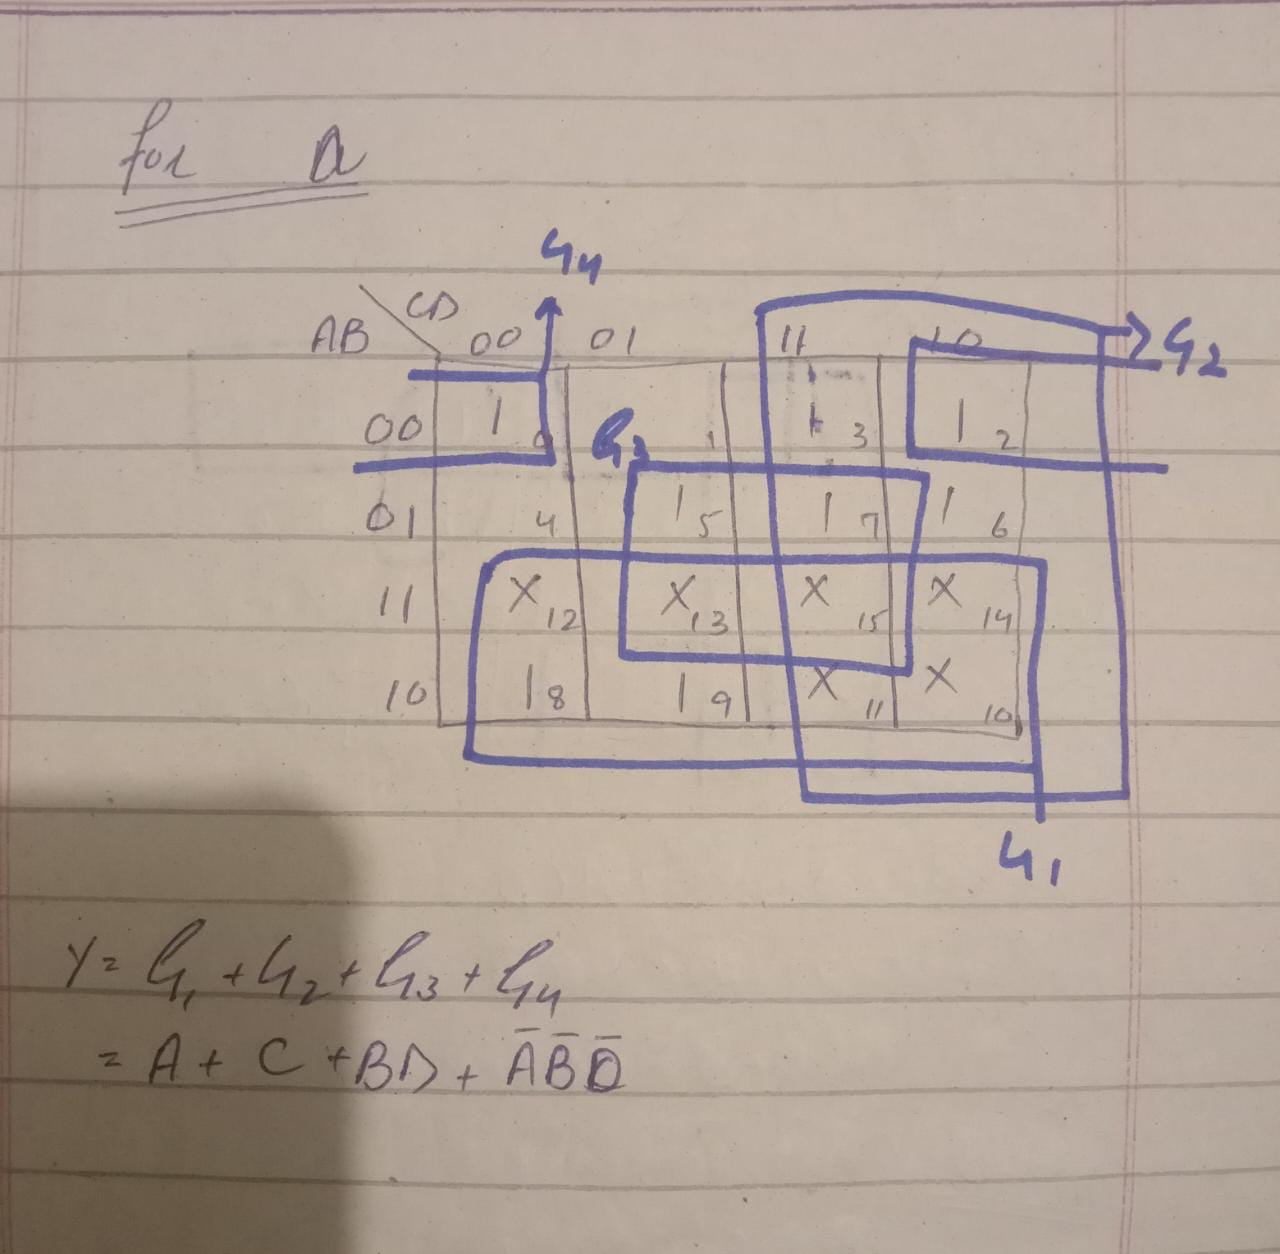 for a
G4
AB CD 00 01 11 10 → G2
00 1 0 1 1 3 1 2
G3
01 4 1 5 1 7 1 6
11 X 12 X 13 X 15 X 14
10 1 8 1 9 X 11 X 10
G1
Y = G1 + G2 + G3 + G4
= A + C + BD + A̅ B̅ D̅